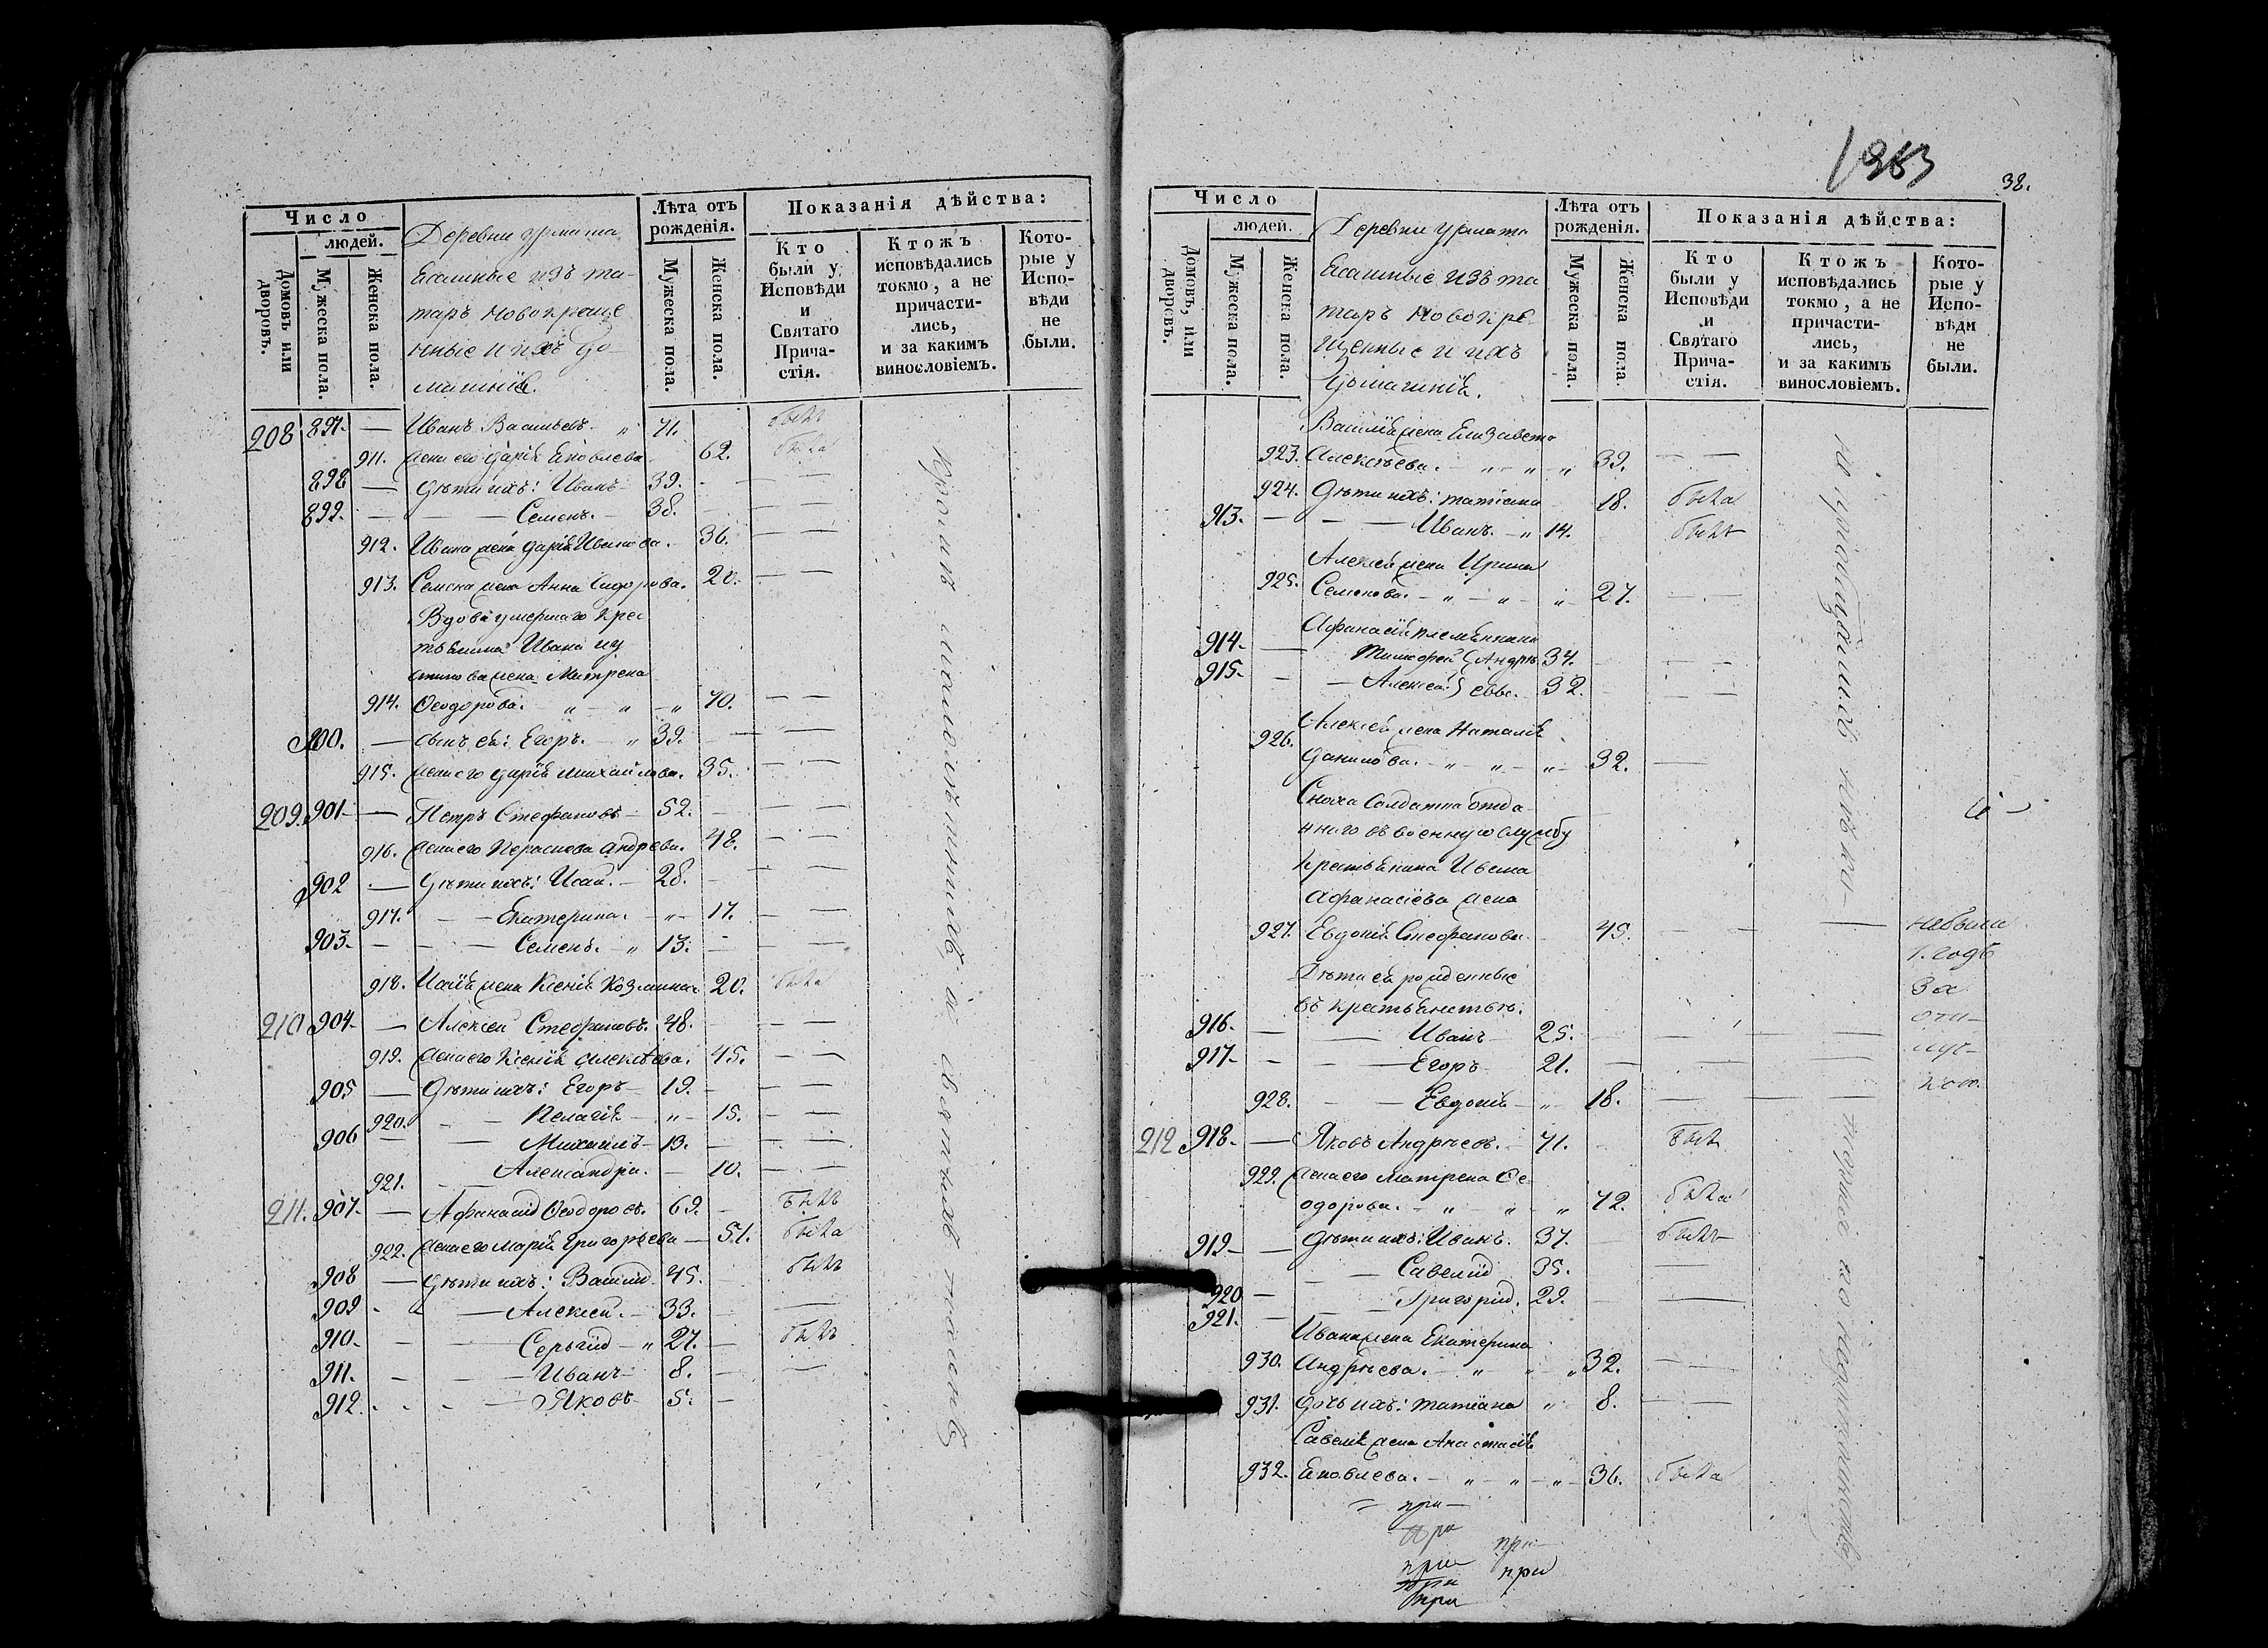 Число
людей.
Домовъ или дворовъ.
Мужеска пола.
Женска пола.
Деревни Урмата
Ясашные изъ та-
таръ новокреще
нные и ихъ до-
машнiе.
Лѣта отъ
рожденія.
Мужеска пола.
Женска пола.
Показанія дѣйства:
Кто
были у
Исповѣди
и
Святаго
Прича-
стія.
Ктожъ
исповѣдались
токмо, а не
причасти-
лись,
и за какимъ
винословіемъ.
Кото-
рые у
Испо-
вѣди
не
были.
208 897. — Иванъ Васильевъ. „ 71. былъ
911. жена его Дарія Яковлева 62. была
898 — Дѣти ихъ: Иванъ — 39. — —
899. — — Семенъ. — 38. — —
912. Ивана жена Дарія Иванова. 36. — —
913. Семена жена Анна Сидорова. 20. — —
Вдова умершаго крес
тьянина Ивана
жена Матрена
914. Ѳеодорова. „ — „ — „ 70. — —
900. — сынъ ея: Егоръ. — „ 39. — —
915. жена его Дарія Михайлова. 35. — —
209. 901 — Петръ Стефановъ — 52. — —
916. жена его Параскова Андрѣева. 48. — —
902 — Дѣти ихъ: Исай. — 28. — —
917. — Екатерина. — „ — 17. — —
903. — — Семенъ. — „ 13. — —
918. Исаія жена Ксенія Козмина 20. была
210 904 — Алексей Стефановъ. 48. — —
919. жена его Ксенія Алексѣева. 45. — —
905 — Дѣти ихъ: Егоръ — 19. — —
920. — Пелагія — „ — 15. — —
906 — — Михаилъ — 13. — —
921. Александра. — 10. — —
211. 907. — Афанасій Ѳеодоровъ. 69. былъ
922. жена его Марія Григорьева — 51. была
908 — Дѣти ихъ: Василій 45. былъ
909 — Алексей. — 33. —
910. — — Сергій — „ 27. — былъ
911. — — Иванъ — 8. — —
912. — — Яковъ — 5. —
1983
38.
Число
людей.
Домовъ, или дворовъ.
Мужеска пола.
Женска пола.
Деревни Урмата
Ясашные изъ та
таръ новокре
щенные и ихъ
домашнія.
Лѣта отъ
рожденія.
Мужеска пола.
Женска пола.
Показанія дѣйства:
Кто
были у
Исповѣди
и
Святаго
Прича-
стія.
Ктожъ
исповѣдались
токмо, а не
причасти-
лись,
и за какимъ
винословіемъ.
Кото-
рые у
Испо-
вѣди
не
были.
Василія жена Елизавета
923. Алексѣева. — „ — „ — „ 39. — —
924. Дѣти ихъ: Татіана 18. была
913. — — Иванъ. — „ 14. былъ
Алексѣя жена Ирина
925. Семенова. — „ — „ — „ 27. — —
Афанасія племянники
914. — Тимофей (Андрѣ 34. — —
915. — — Алексей } евы. 32. — —
Алексѣя жена Наталія
926. Данилова. — „ — „ — „ 32. —
Сноха солдатка отда
ннаго въ военную службу
крестьянина Ивана
Афанасіева жена
927. Евдокія Стефанова 45. — — небыла
1. годъ
За
отл-
уч-
кою.
Дѣти ея рожденные
въ крестьянствѣ:
916. — — Иванъ 25. — —
917. — — Егоръ 21. — —
928. — — Евдокія — „ — 18. — —
212 918. — Яковъ Андрѣевъ. — 71. былъ
929. жена его Матрена Ѳе
одорова. — „ — „ — „ 72. была
919 — Дѣти ихъ: Иванъ. 37. былъ
920 — — Савелій 35. —
921. — — Григорій. 29. —
Ивана жена Екатерина
930. Андрѣева. — „ — „ — „ 32. — —
931. Дочь ихъ: Татіана „ 8. — —
Савелія жена Анастасія
932. Яковлева. — „ — „ — „ 36. была
при
при при
при при
при
при